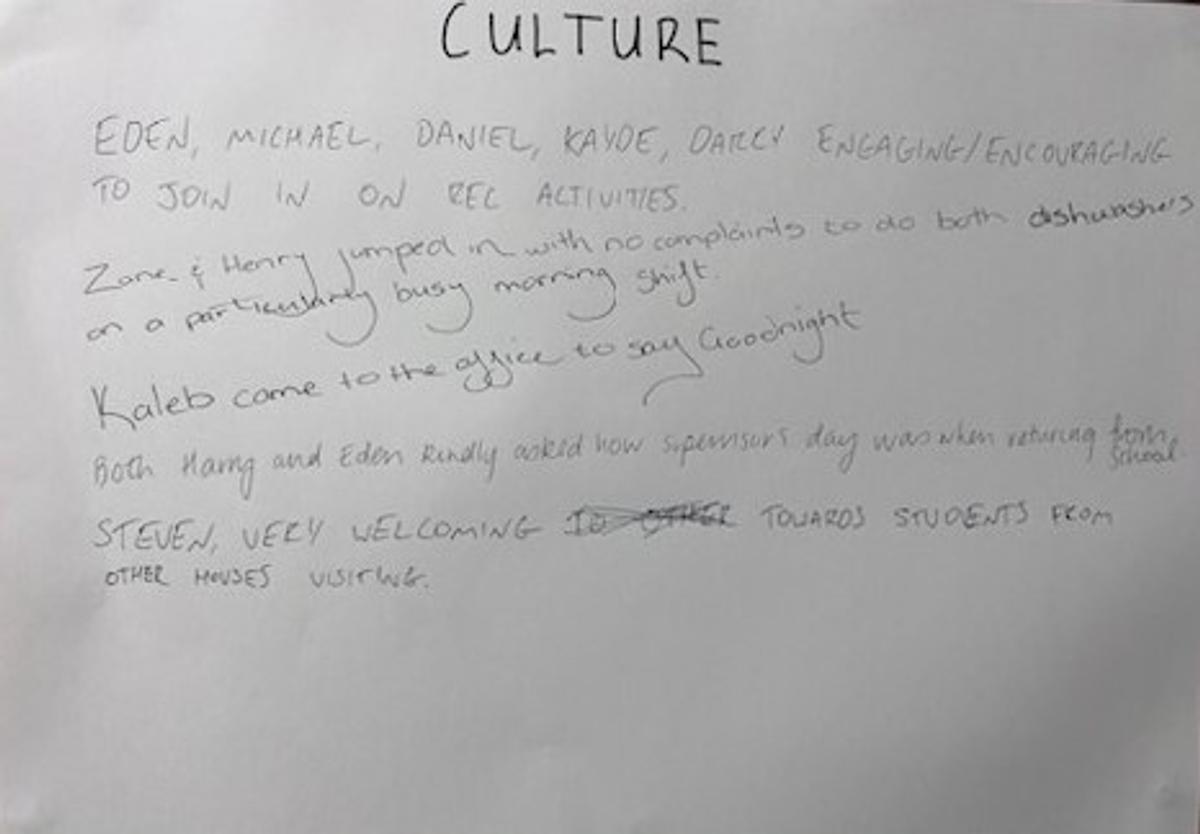 CULTURE
EDEN, MICHAEL, DANIEL, KAYDE, DARCY ENGAGING/ENCOURAGING
TO JOIN IN ON REC ACTIVITIES.
Zane & Henry jumped in with no complaints to do both dishwashers
on a particularly busy morning shift.
Kaleb came to the office to say Goodnight
Both Harry and Eden kindly asked how supervisors day was when returing from
school
STEVEN, VERY WELCOMING TOWARDS STUDENTS FROM
OTHER HOUSES VISITING.